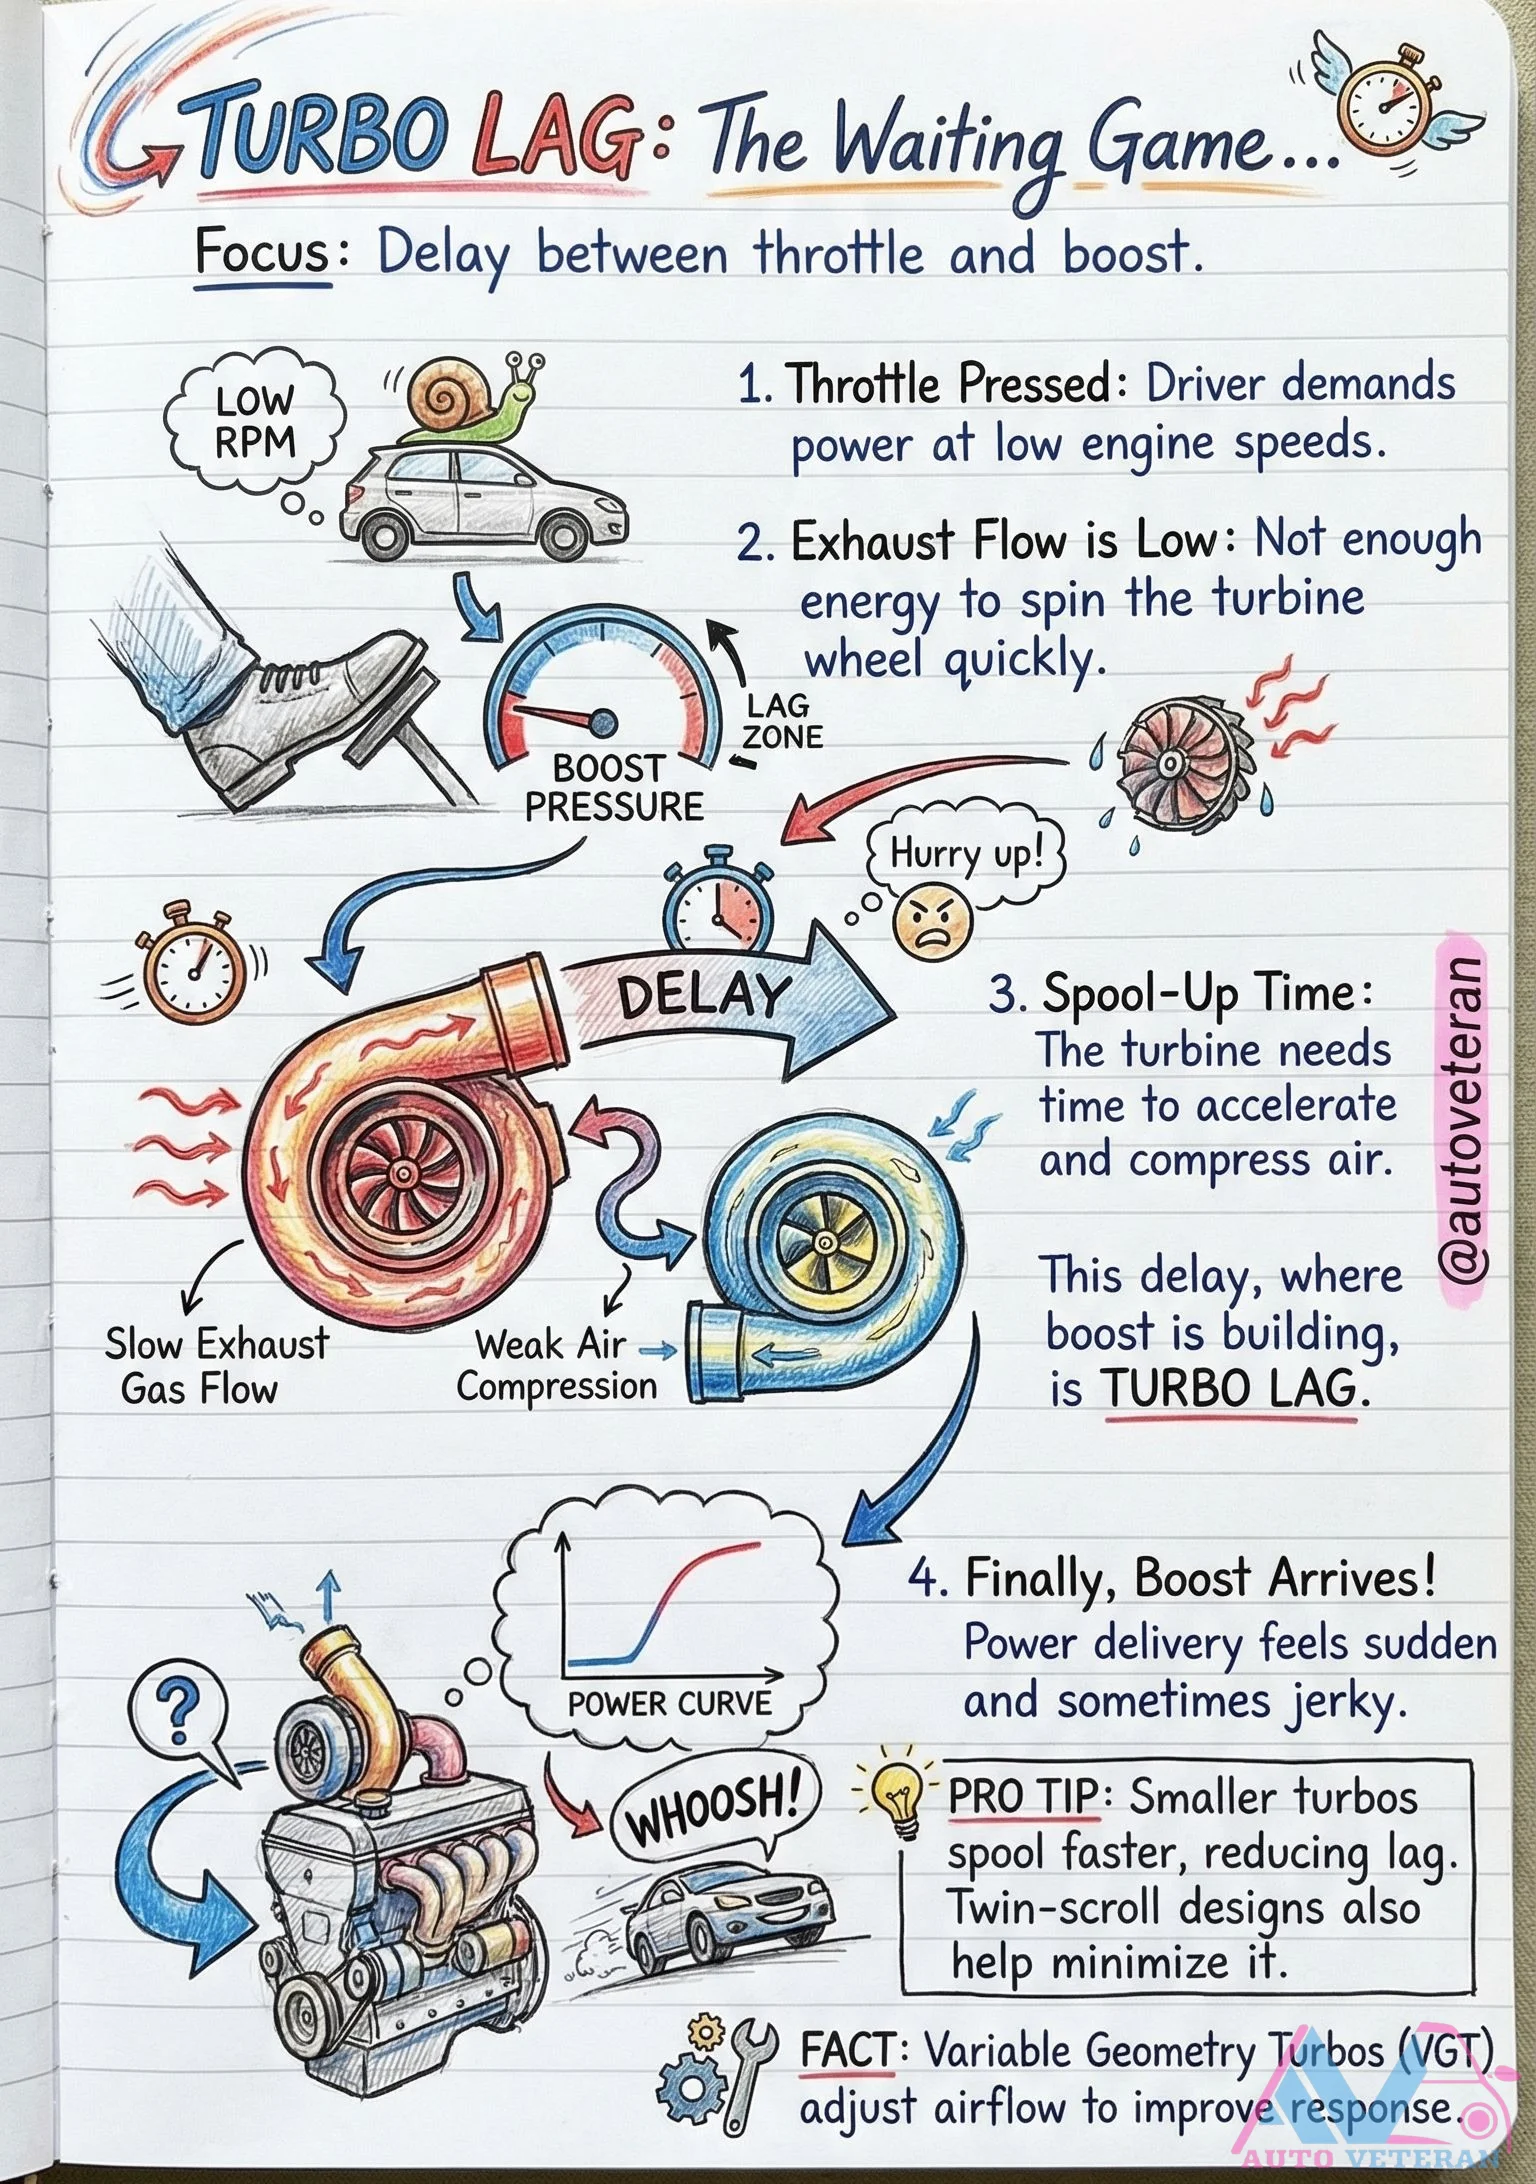 TURBO LAG: The Waiting Game...
Focus: Delay between throttle and boost.
LOW
RPM
1. Throttle Pressed: Driver demands
power at low engine speeds.
2. Exhaust Flow is Low: Not enough
energy to spin the turbine
wheel quickly.
LAG
ZONE
BOOST
PRESSURE
Hurry up!
DELAY
3. Spool-Up Time:
The turbine needs
time to accelerate
and compress air.
@autoveteran
This delay, where
boost is building,
is TURBO LAG.
Slow Exhaust
Gas Flow
Weak Air
Compression
4. Finally, Boost Arrives!
Power delivery feels sudden
and sometimes jerky.
POWER CURVE
?
WHOOSH!
PRO TIP: Smaller turbos
spool faster, reducing lag.
Twin-scroll designs also
help minimize it.
FACT: Variable Geometry Turbos (VGT)
adjust airflow to improve response.
AV
AUTO VETERAN